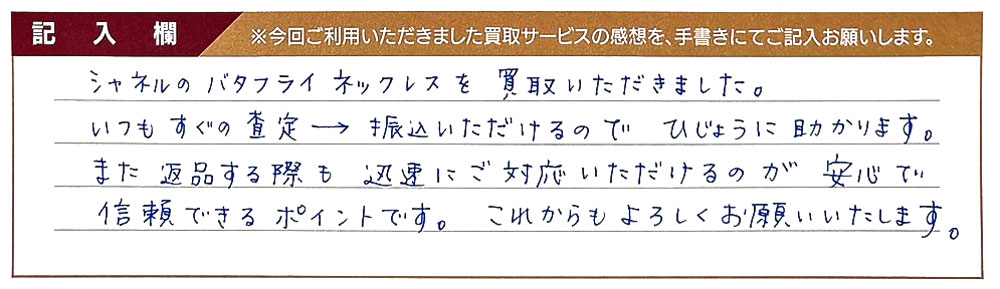 記入欄 ※今回ご利用いただきました買取サービスの感想を、手書きにてご記入お願いします。
シャネルの バタフライ ネックレスを 買取いただきました。
いつも すぐの 査定 → 振込いただけるので ひじょうに 助かります。
また 返品する際も 迅速に ご対応いただけるのが 安心で
信頼できる ポイントです。 これからも よろしく お願いいたします。